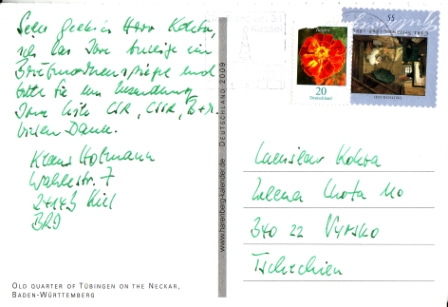 Sehr geehrter Herr Kokta,
ich las Ihre Anzeige im
Briefmarkenspiegel und
bitte Sie um Zusendung
Ihrer Liste CSR, CSSR, B+M.
Vielen Dank.
Klaus Hofmann
7
24143 Kiel
BRD
OLD QUARTER OF TÜBINGEN ON THE NECKAR,
BADEN-WÜRTTEMBERG
www.harenberg-kalender.de DEUTSCHLAND 2009
20
Deutschland
55
Ladislav Kokta
Zelena Lhota 110
340 22 Nyrsko
Tschechien